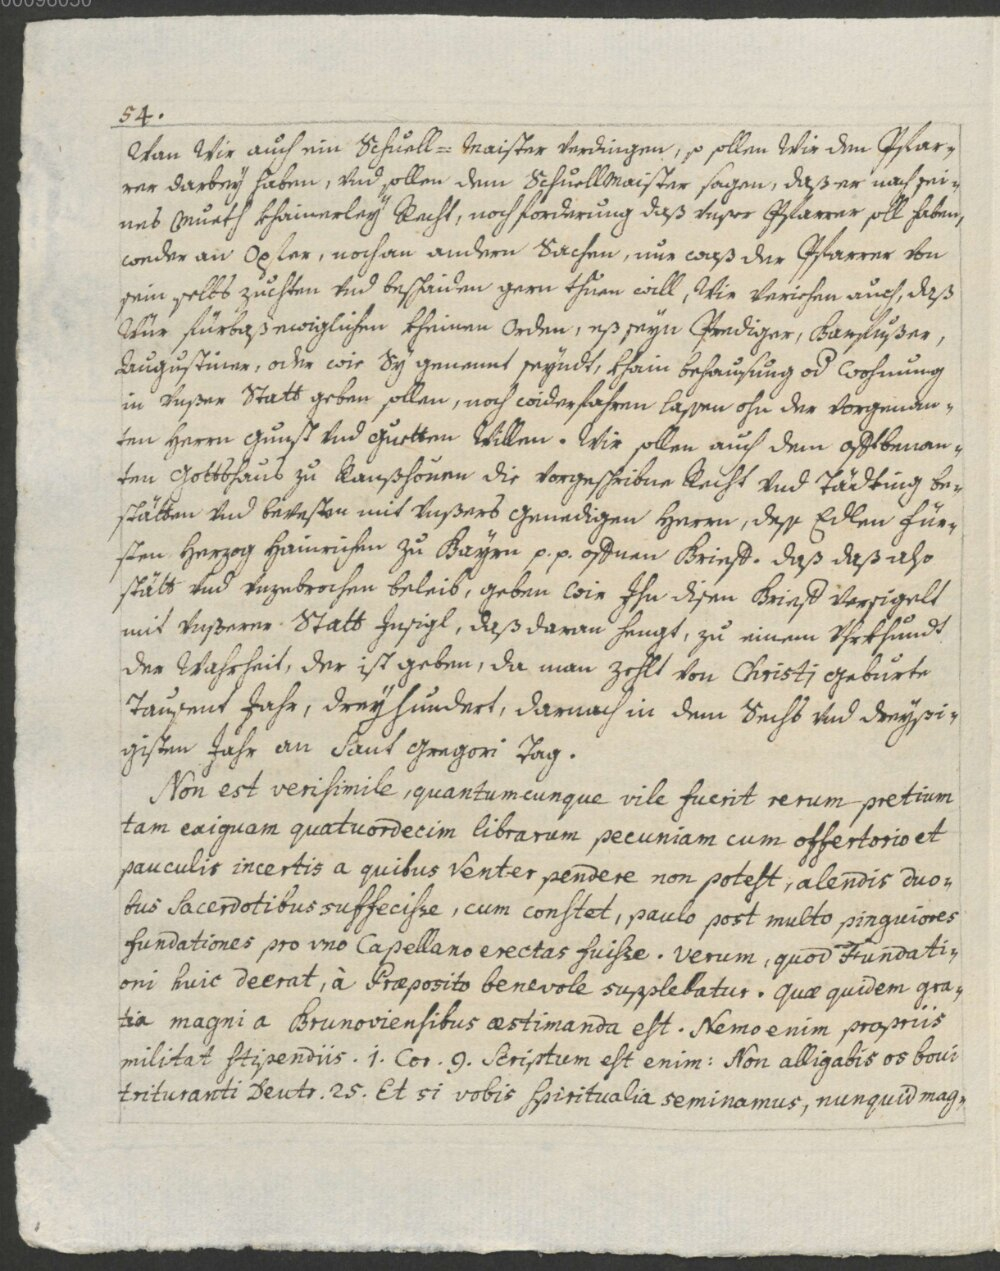 00098050
54.
Wan Wir auch ein Schuell= Maister verdingen, so sollen Wir den Pfar¬
rer darbey haben, vnd sollen dem Schuell Maister sagen, daß er nach sei¬
nes Mueth khainerley Recht, noch forderung daß vnser Pfarrer soll haben,
weder an Opfer, noch an andern Sachen, nur waß der Pfarrer von
sein selbs zuchten vnd beshaiden gern thuen will, Wir veriehen auch, daß
Wür fürbaß ewiglichen kheinen Orden, eß seyn Prediger, Barfußer,
Augustiner, oder wie Sy genennt seyndt, khain behausung od Wohnung
in vnßer Statt geben sollen, noch widerfahren lassen ohn der vorgenan¬
ten Herrn gunst vnd guetten Willen. Wir sollen auch dem offtbenan¬
ten Gottshaus zu Ranßhouen die vorgeschribne Recht vnd Tädting be¬
stätten vnd bevesten mit vnßers Genedigen Herrn, deß Edlen für¬
sten Herzog Hainrichen zu Bayrn p. p. offnen Brieff. daß daß also
stätt vnd vnzebrochen beleib, geben wir Ihn disen Brieff versigelt
mit vnßerer Statt Insigl, daß daran hengt, zu einem Vhrkhundt
der Wahrheit, der ist geben, da man zehlt von Christi geburte
Tausent Jahr, dreyhundert, darnach in dem Sechs vnd dreyßi¬
gisten Jahr an Sant Gregori Tag.
Non est verisimile, quantumcunque vile fuerit rerum pretium
tam exiguam quatuordecim librarum pecuniam cum offertorio et
pauculis incertis a quibus venter pendere non potest, alendis duo¬
bus Sacerdotibus suffecisse, cum constet, paulo post multo pinguiores
fundationes pro vno Capellano erectas fuisse. Verum, quod Fundati¬
oni huic deerat, à Præposito benevole supplebatur. Quæ quidem gra¬
tia magni a Brunoviensibus æstimanda est. Nemo enim propriis
militat stipendiis. 1. Cor. 9. Scriptum est enim: Non alligabis os boui
trituranti Deutr. 25. Et si vobis spiritualia seminamus, nunquid mag¬